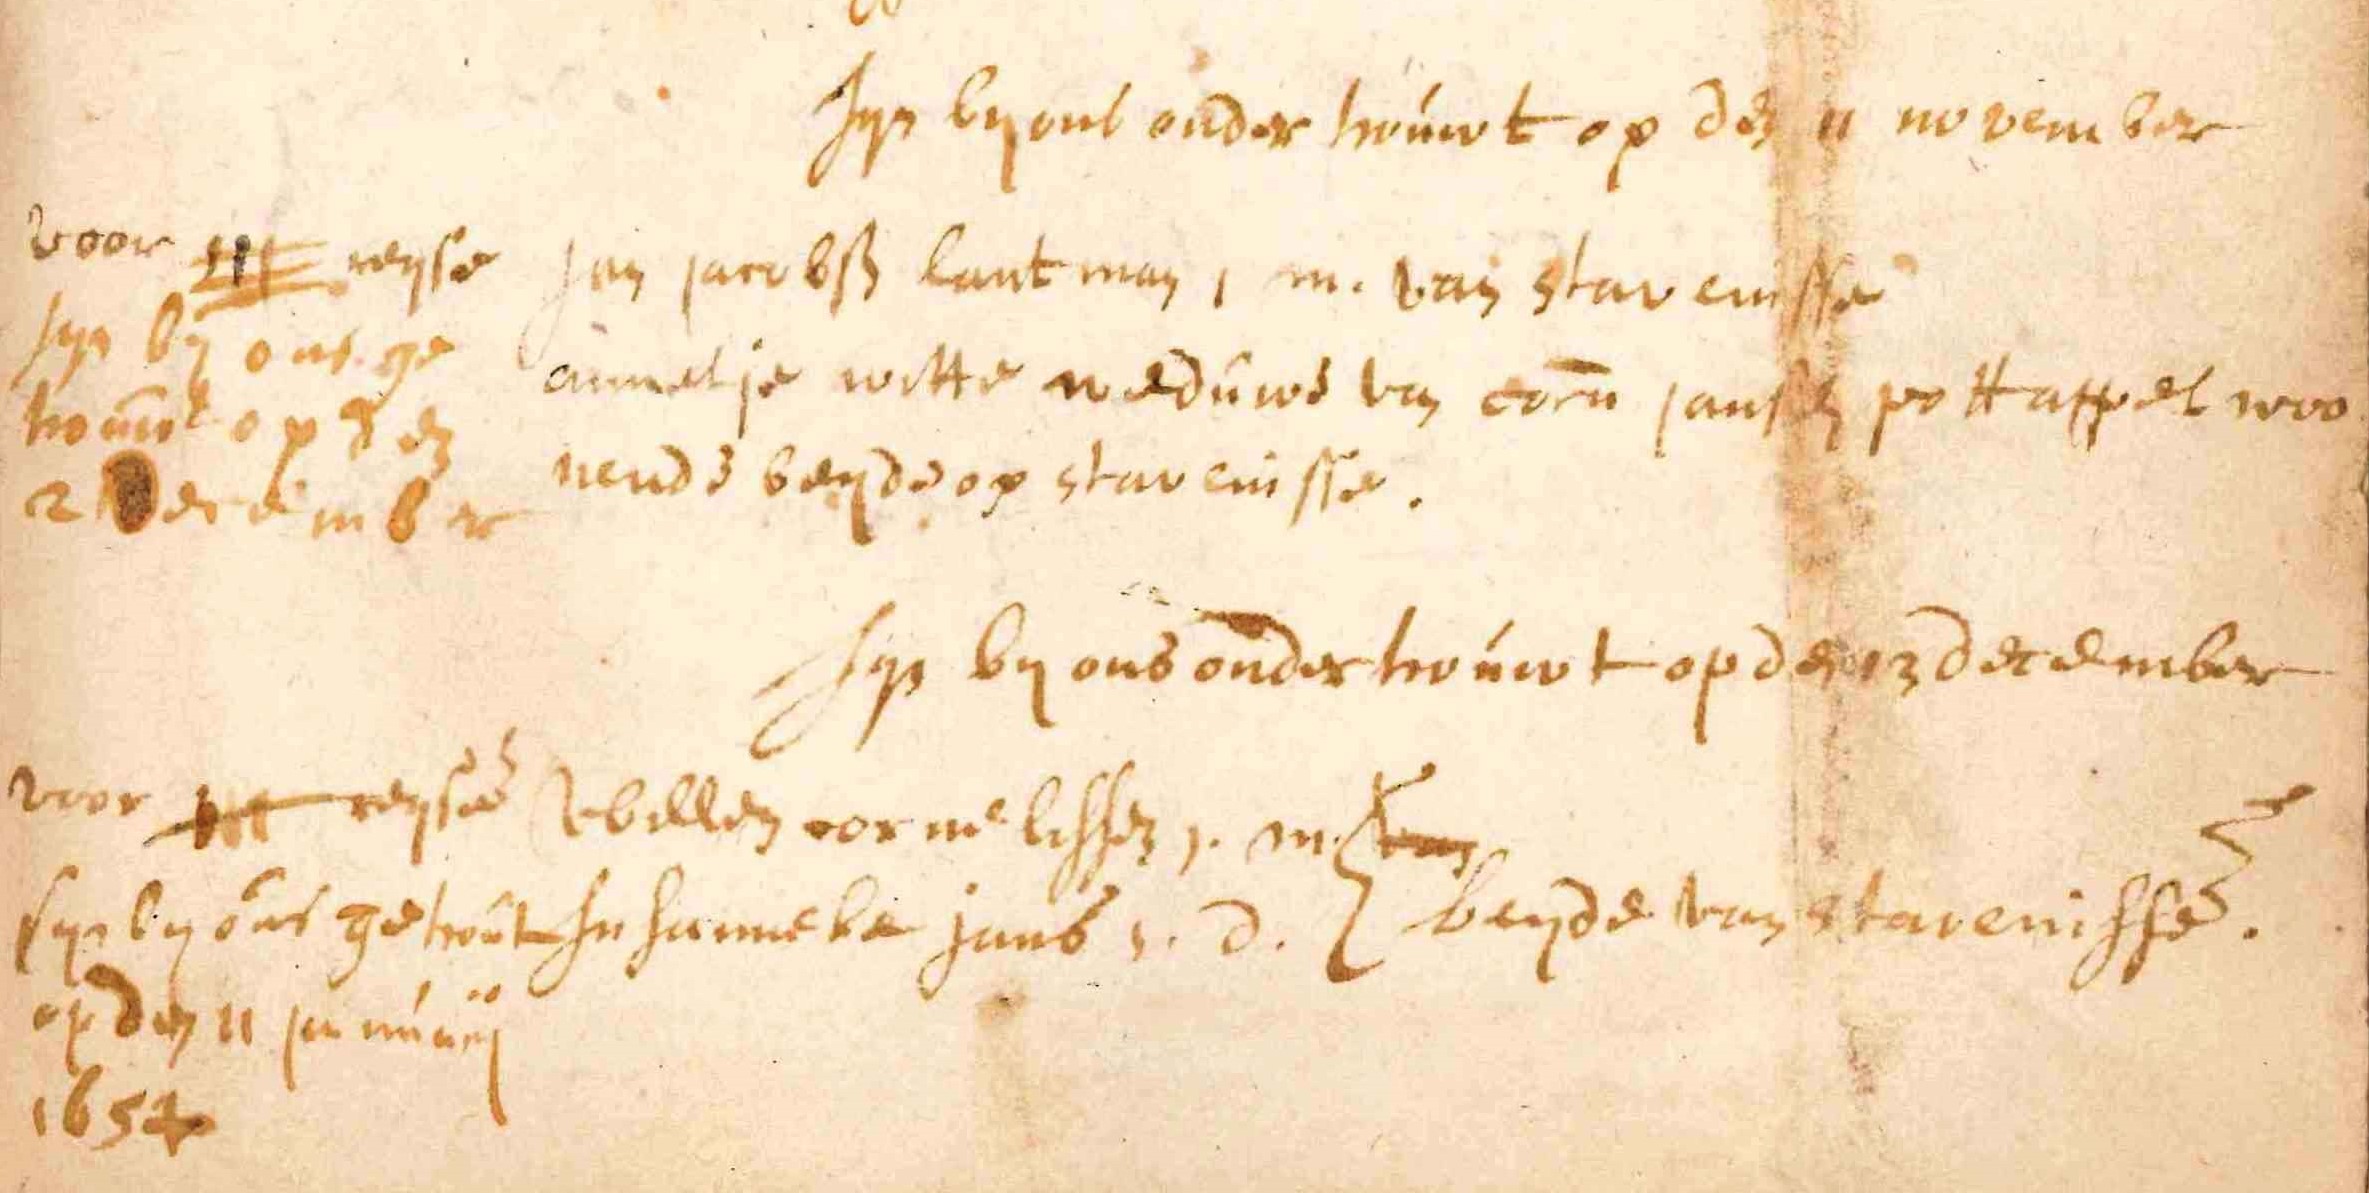 sijn bij ons onder houwt op den 11 november
voor III reijse
sijn bij ons ge
houwt op den
2 december
jan jacobss lantman j. m. van stavenisse
annetje witte weduwe van corn jansen pottappel woo
nende beijde op stavenisse.
sijn bij ons onderhouwt op den 13 december
voor III reijse
sijn bij ons gehout
op den 11 januarij
1654
Willem cornelissen j. m. van
en janneke jans j. d. beijde van stavenisse.